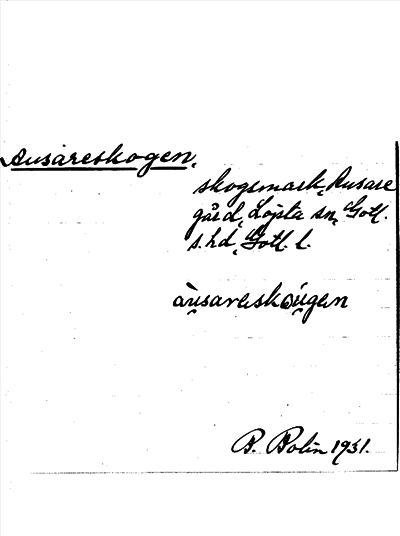 Ausareskogen,
skogsmark, Ausare
gård, Lojsta sn, Gotl.
s. hd, Gotl. l.
àu̯sareskåu̯gen
B. Bolin 1931.